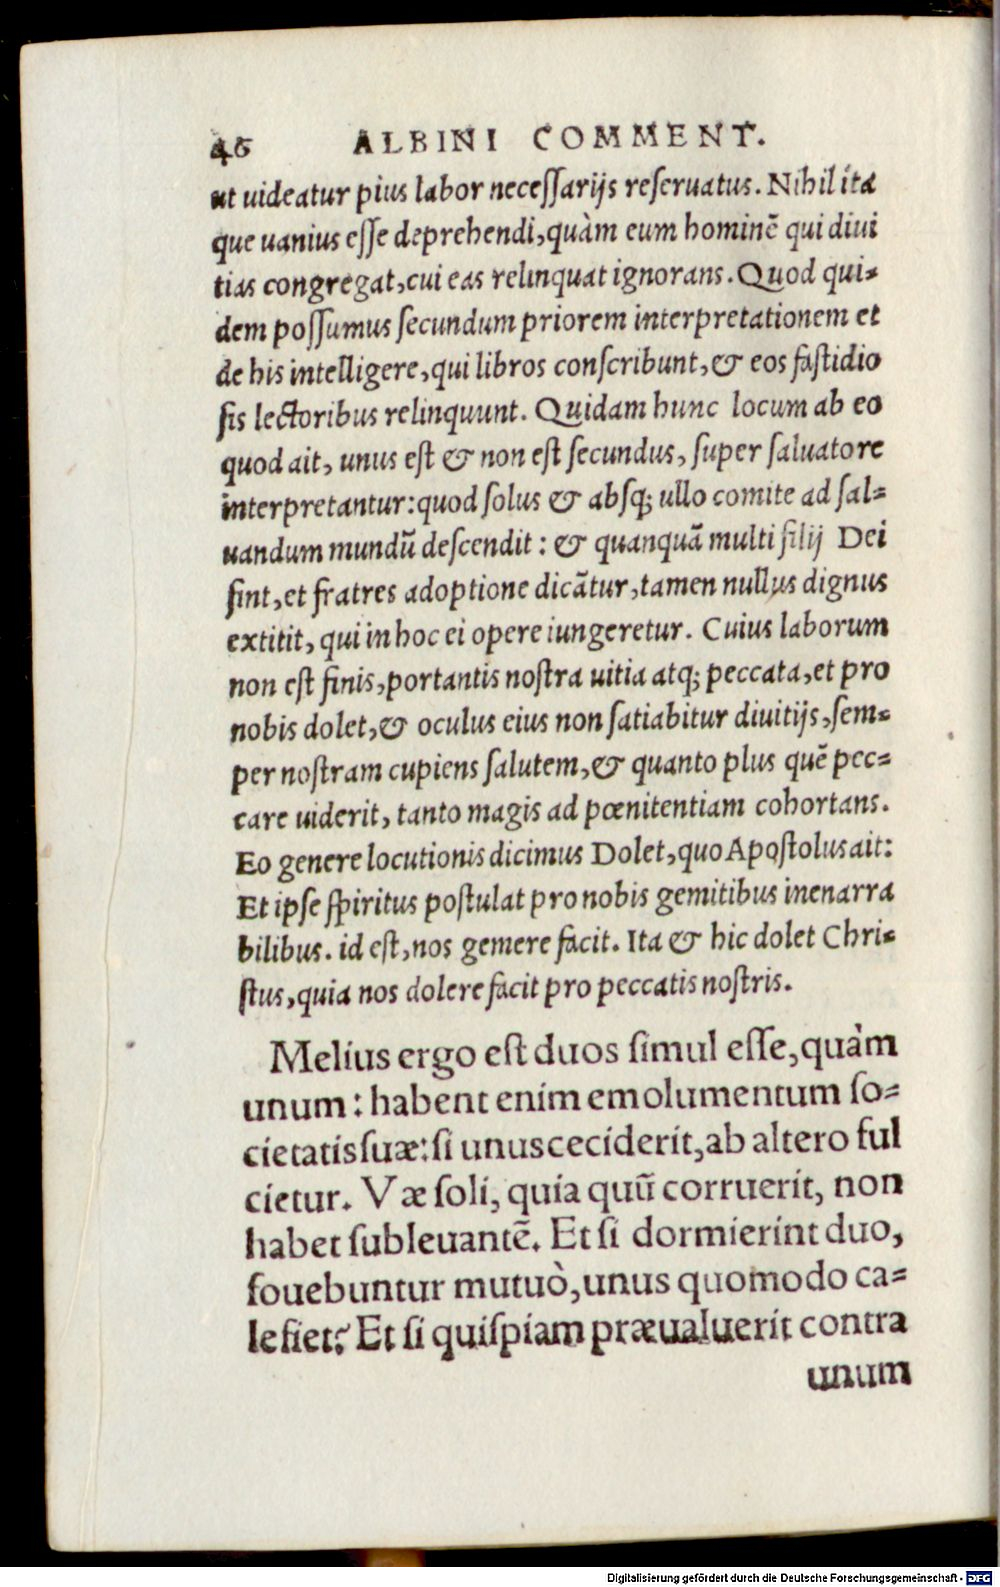 46 ALBINI COMMENT.
ut uideatur pius labor neceſſarijs reſeruatus. Nihil ita
que uanius eſſe deprehendi, quàm eum hominē qui diui
tias congregat, cui eas relinquat ignorans. Quod qui-
dem poſſumus ſecundum priorem interpretationem et
de his intelligere, qui libros conſcribunt, & eos faſtidio
ſis lectoribus relinquunt. Quidam hunc locum ab eo
quod ait, unus eſt & non eſt ſecundus, ſuper ſaluatore
interpretantur: quod ſolus & abſq; ullo comite ad ſal-
uandum mundū deſcendit: & quanquā multi filij Dei
ſint, et fratres adoptione dicātur, tamen nullus dignus
extitit, qui in hoc ei opere iungeretur. Cuius laborum
non eſt finis, portantis noſtra uitia atq; peccata, et pro
nobis dolet, & oculus eius non ſatiabitur diuitijs, ſem-
per noſtram cupiens ſalutem, & quanto plus quē pec-
care uiderit, tanto magis ad pœnitentiam cohortans.
Eo genere locutionis dicimus Dolet, quo Apoſtolus ait:
Et ipſe ſpiritus poſtulat pro nobis gemitibus inenarra
bilibus. id eſt, nos gemere facit. Ita & hic dolet Chri-
ſtus, quia nos dolere facit pro peccatis noſtris.
Melius ergo eſt duos ſimul eſſe, quàm
unum: habent enim emolumentum ſo-
cietatis ſuæ: ſi unus ceciderit, ab altero ful
cietur. Væ ſoli, quia quū corruerit, non
habet ſubleuantē. Et ſi dormierint duo,
fouebuntur mutuò, unus quomodo ca-
lefiet? Et ſi quiſpiam præualuerit contra
unum
Digitalisierung gefördert durch die Deutsche Forschungsgemeinschaft - DFG